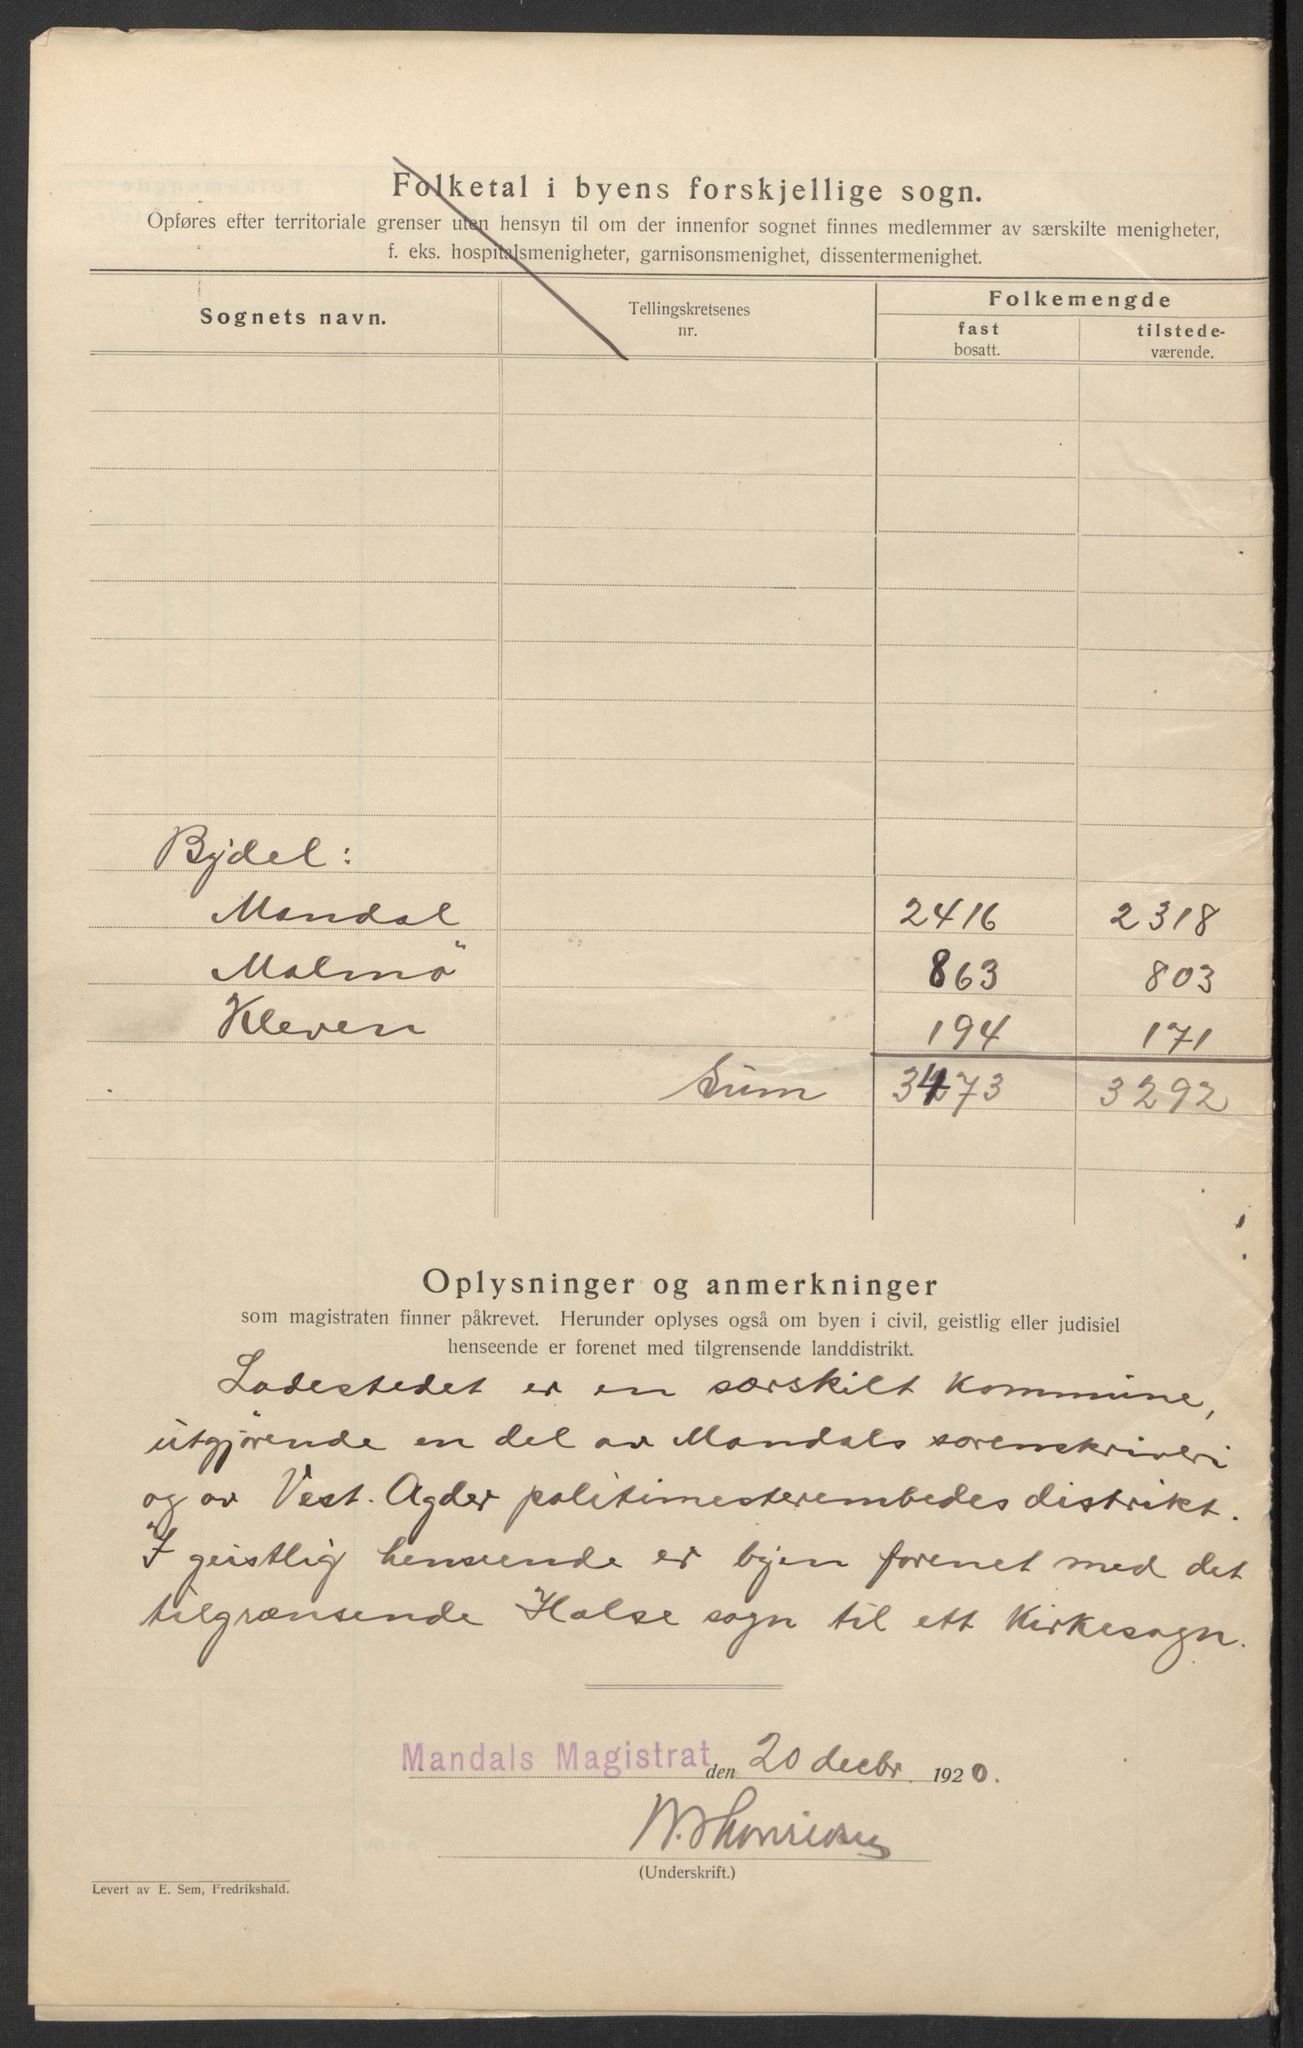 Folketal i byens forskjellige sogn.
Opføres efter territoriale grenser uten hensyn til om der innenfor sognet finnes medlemmer av særskilte menigheter,
f. eks. hospitalsmenigheter, garnisonsmenighet, dissentermenighet.
Sognets navn. Tellingskretsenes nr. Folkemengde
fast bosatt. tilstede-værende.
Bydel:
Mandal 2416 2318
Malmö 863 803
Kleven 194 171
Sum 3473 3292
Oplysninger og anmerkninger
som magistraten finner påkrevet. Herunder oplyses også om byen i civil, geistlig eller judisiel
henseende er forenet med tilgrensende landdistrikt.
Ladestedet er en særskilt kommune,
utgjørende en del av Mandals sorenskriveri
og av Vest-Agder politimesterembedes distrikt.
I geistlig henseende er byen forenet med det
tilgrænsende Halse sogn til ett kirkesogn.
Mandals Magistrat den 20 decbr. 1920.
(Underskrift.)
Levert av E. Sem, Fredrikshald.